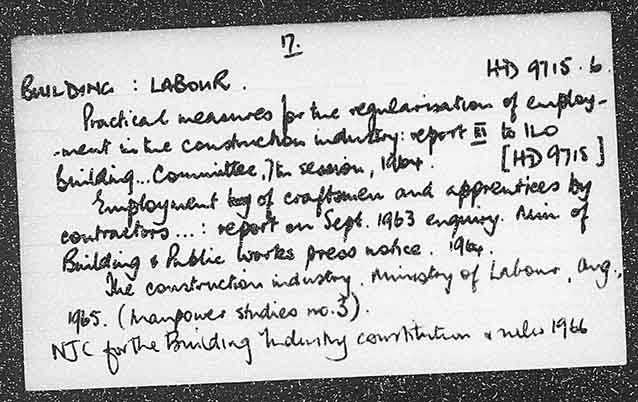 17.
BUILDING : LABOUR. HD 9715 . b
Practical measures for the regularisation of employ-
-ment in the construction industry: report III to ILO
Building... Committee, 7th session, 1964. [HD 9715]
Employment of craftsmen and apprentices by
contractors...: report on Sept. 1963 enquiry. Min of
Building & Public works press notice. 1964.
The construction industry. Ministry of Labour, Aug.,
1965. (Manpower studies no. 3).
NJC for the Building Industry constitution & rules 1966